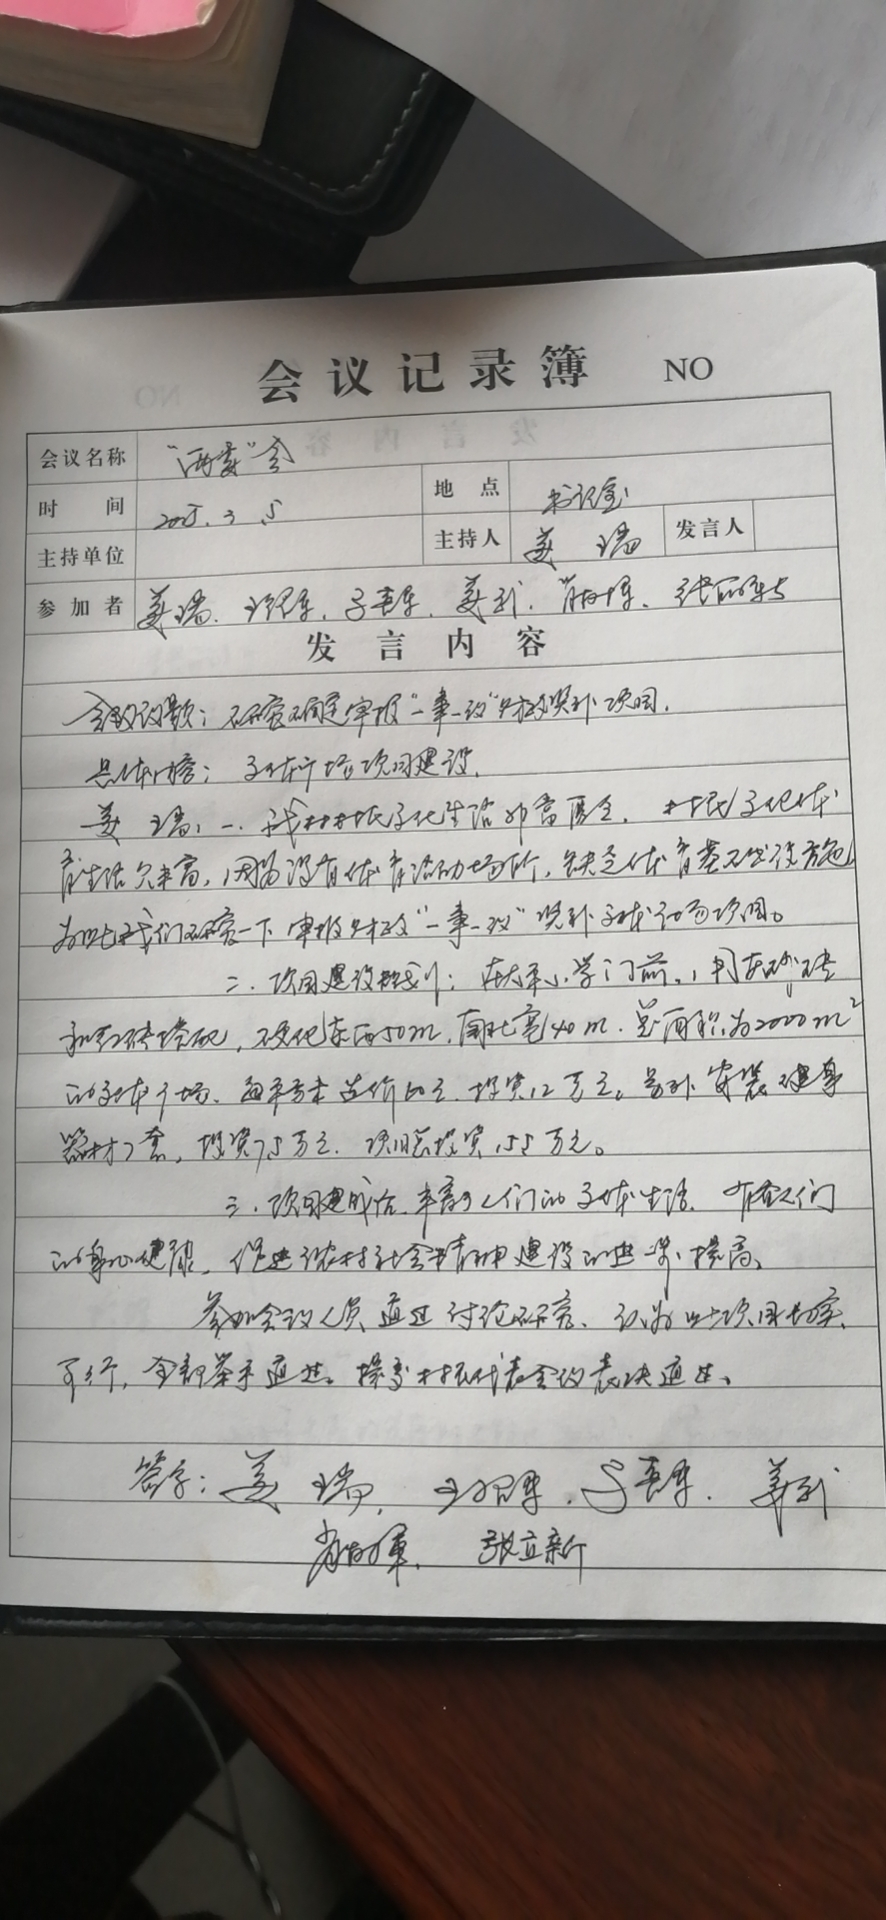 会议记录簿 NO
会议名称 “两委”会
时间 2025.3.5 地点 书记室
主持单位 主持人 姜瑞 发言人
参加者 姜瑞、姜武、
发言内容
会议议题：研究确定申报“一事一议”财政奖补项目。
具体内容：文体广场项目建设。
姜瑞：一、我村村民文化生活 村民文化体
育生活欠丰富，因为没有体育活动场所，缺乏体育基础设施
为此我们研究一下申报财政“一事一议”奖补文体广场项目。
二、项目建设规划：在 小学门前，用
和红砖搭配，硬化东西50m，南北宽40m，总面积为2000m²
的文体广场，每平方米造价60元，投资12万元。另外安装健身
器材 套，投资 万元，项目总投资 万元。
三、项目建成后，丰富了人们的文体生活，有益人们
的身心健康，促进农村社会精神建设的进一步提高。
参加会议人员通过讨论研究，认为此项目切实
可行，全部举手通过。提交村民代表会议表决通过。
签字：姜瑞，姜武
张立新